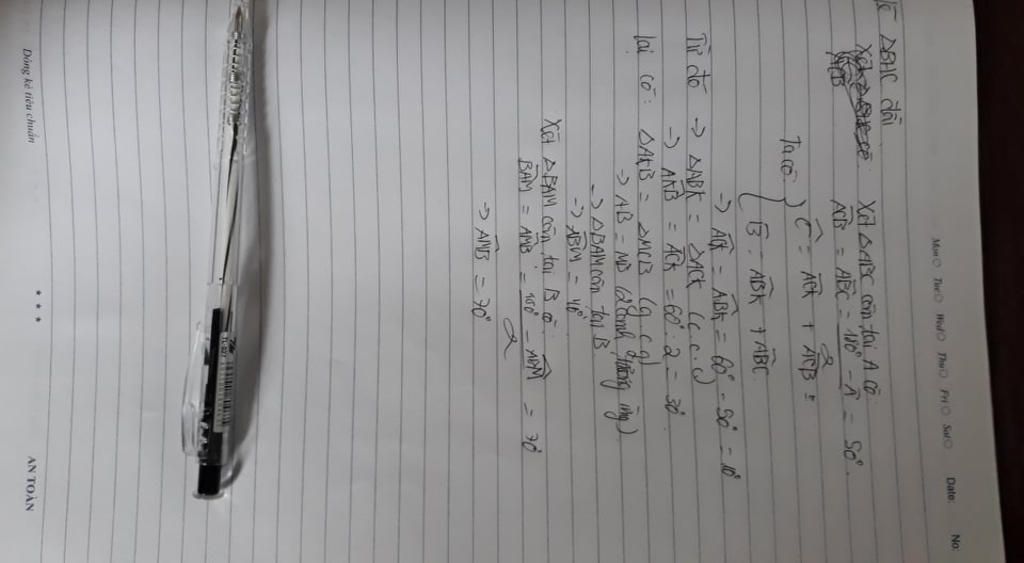 Mon Tue Wed Thu Fri Sat Date: No:
Vẽ ΔBKC đều
Xét ΔABC cân tại A có:
ACB = ABC = 180° - Â / 2 = 50°.
Ta có { Ĉ = ACK + ACB =
B̂ = ABK + ABC
-> ACK = ABK = 60° - 50° = 10°
Từ đó -> ΔABK = ΔACK (c.c.c)
-> AKB = ACK = 60° : 2 = 30°.
Lại có: ΔAKB = ΔMCB (g.c.g)
-> AB = MB (2 cạnh tương ứng)
-> ΔBAM cân tại B
-> ABM = 40°
Xét ΔBAM cân tại B có:
BAM = AMB = 180° - ABM / 2 = 70°
-> AMB = 70°
Dòng kẻ tiêu chuẩn *** AN TOÀN